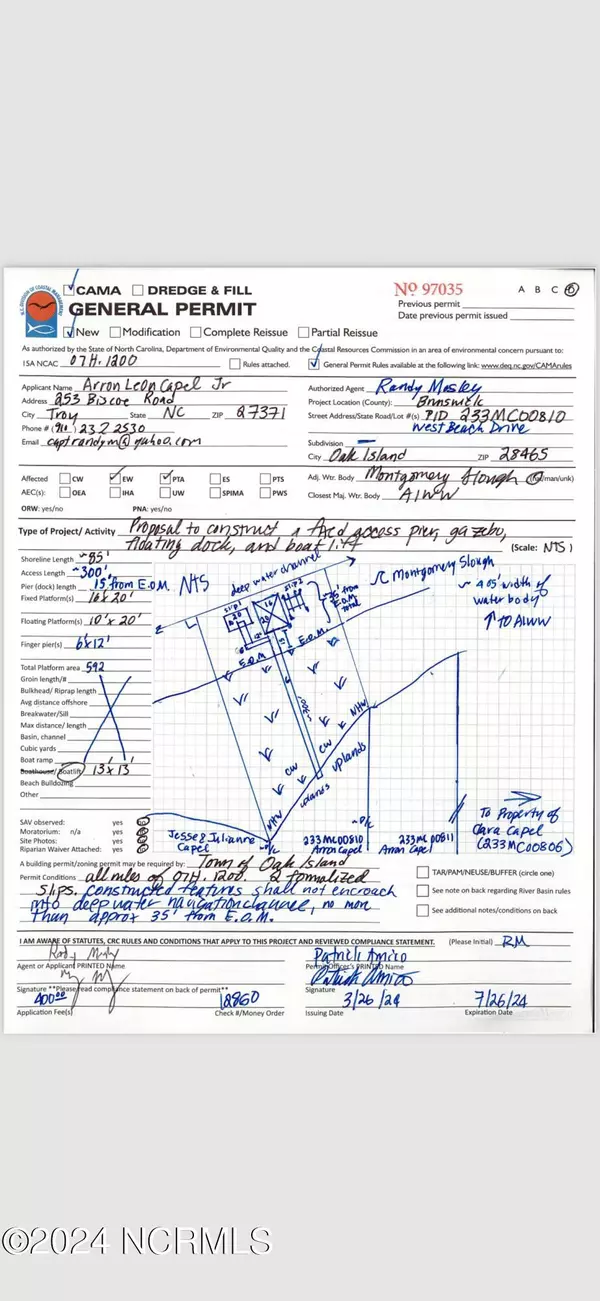 N.C. DIVISION OF COASTAL MANAGEMENT
CAMA DREDGE & FILL
GENERAL PERMIT
No 97035 A B C D
Previous permit
Date previous permit issued
New Modification Complete Reissue Partial Reissue
As authorized by the State of North Carolina, Department of Environmental Quality and the Coastal Resources Commission in an area of environmental concern pursuant to:
15A NCAC 07H.1200 Rules attached. General Permit Rules available at the following link: www.deq.nc.gov/CAMArules
Applicant Name Arron Leon Capel Jr
Address 253 Biscoe Road
City Troy State NC ZIP 27371
Phone # (910) 232 2530
Email captrandym@yahoo.com
Authorized Agent Randy Mosley
Project Location (County): Brunswick
Street Address/State Road/Lot #(s) PID 233MC00810
West Beach Drive
Subdivision —
City Oak Island ZIP 28465
Affected AEC(s): CW EW PTA ES PTS
OEA IHA UW SPIMA PWS
ORW: yes/no PNA: yes/no
Adj. Wtr. Body Montgomery Slough (nat/man/unk)
Closest Maj. Wtr. Body AIWW
Type of Project/ Activity Proposal to construct a fixed access pier, gazebo,
floating dock, and boat lift (Scale: NTS)
Shoreline Length ~85'
Access Length ~300'
Pier (dock) length 15' from E.O.M.
Fixed Platform(s) 16'x20'
Floating Platform(s) 10'x20'
Finger pier(s) 6'x12'
Total Platform area 592
Groin length/#
Bulkhead/ Riprap length
Avg distance offshore
Breakwater/Sill
Max distance/ length
Basin, channel
Cubic yards
Boat ramp
Boathouse/ Boatlift 13'x13'
Beach Bulldozing
Other
SAV observed: yes
Moratorium: n/a yes
Site Photos: yes
Riparian Waiver Attached: yes
NTS
deep water channel
Montgomery Slough
~ 405' width of
water body
↑ TO AIWW
slip 1
slip 2
16
20
12'
15'
E.O.M
E.O.M
~300'
NHW
CW
CW
uplands
uplands
NHW
Jesse & Julianne
Capel
233MC00810
Arron Capel
233MC00811
Arron Capel
To Property of
Cara Capel
(233MC00806)
A building permit/zoning permit may be required by: Town of Oak Island
Permit Conditions all rules of 07H.1200. 2 formalized
slips. constructed features shall not encroach
into deep water navigation channel, no more
than approx 35' from E.O.M.
TAR/PAM/NEUSE/BUFFER (circle one)
See note on back regarding River Basin rules
See additional notes/conditions on back
I AM AWARE OF STATUTES, CRC RULES AND CONDITIONS THAT APPLY TO THIS PROJECT AND REVIEWED COMPLIANCE STATEMENT. (Please Initial) RM
Agent or Applicant PRINTED Name
Permit Officer's PRINTED Name
Signature **Please read compliance statement on back of permit**
Signature
400.00 18960
Application Fee(s) Check #/Money Order
3/26/24 7/26/24
Issuing Date Expiration Date
©2024 NCRMLS